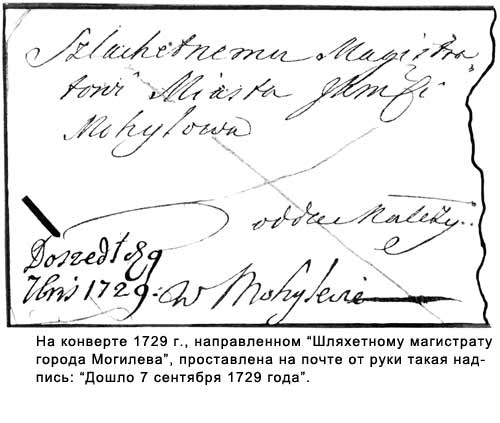 Szlachetnemu Magistra
towi Miasta JKMśći
Mohylowa
oddać należy.
Doszedł d 9
7bris 1729. w Mohylewie
На конверте 1729 г., направленном “Шляхетному магистрату
города Могилева”, проставлена на почте от руки такая над-
пись: “Дошло 7 сентября 1729 года”.